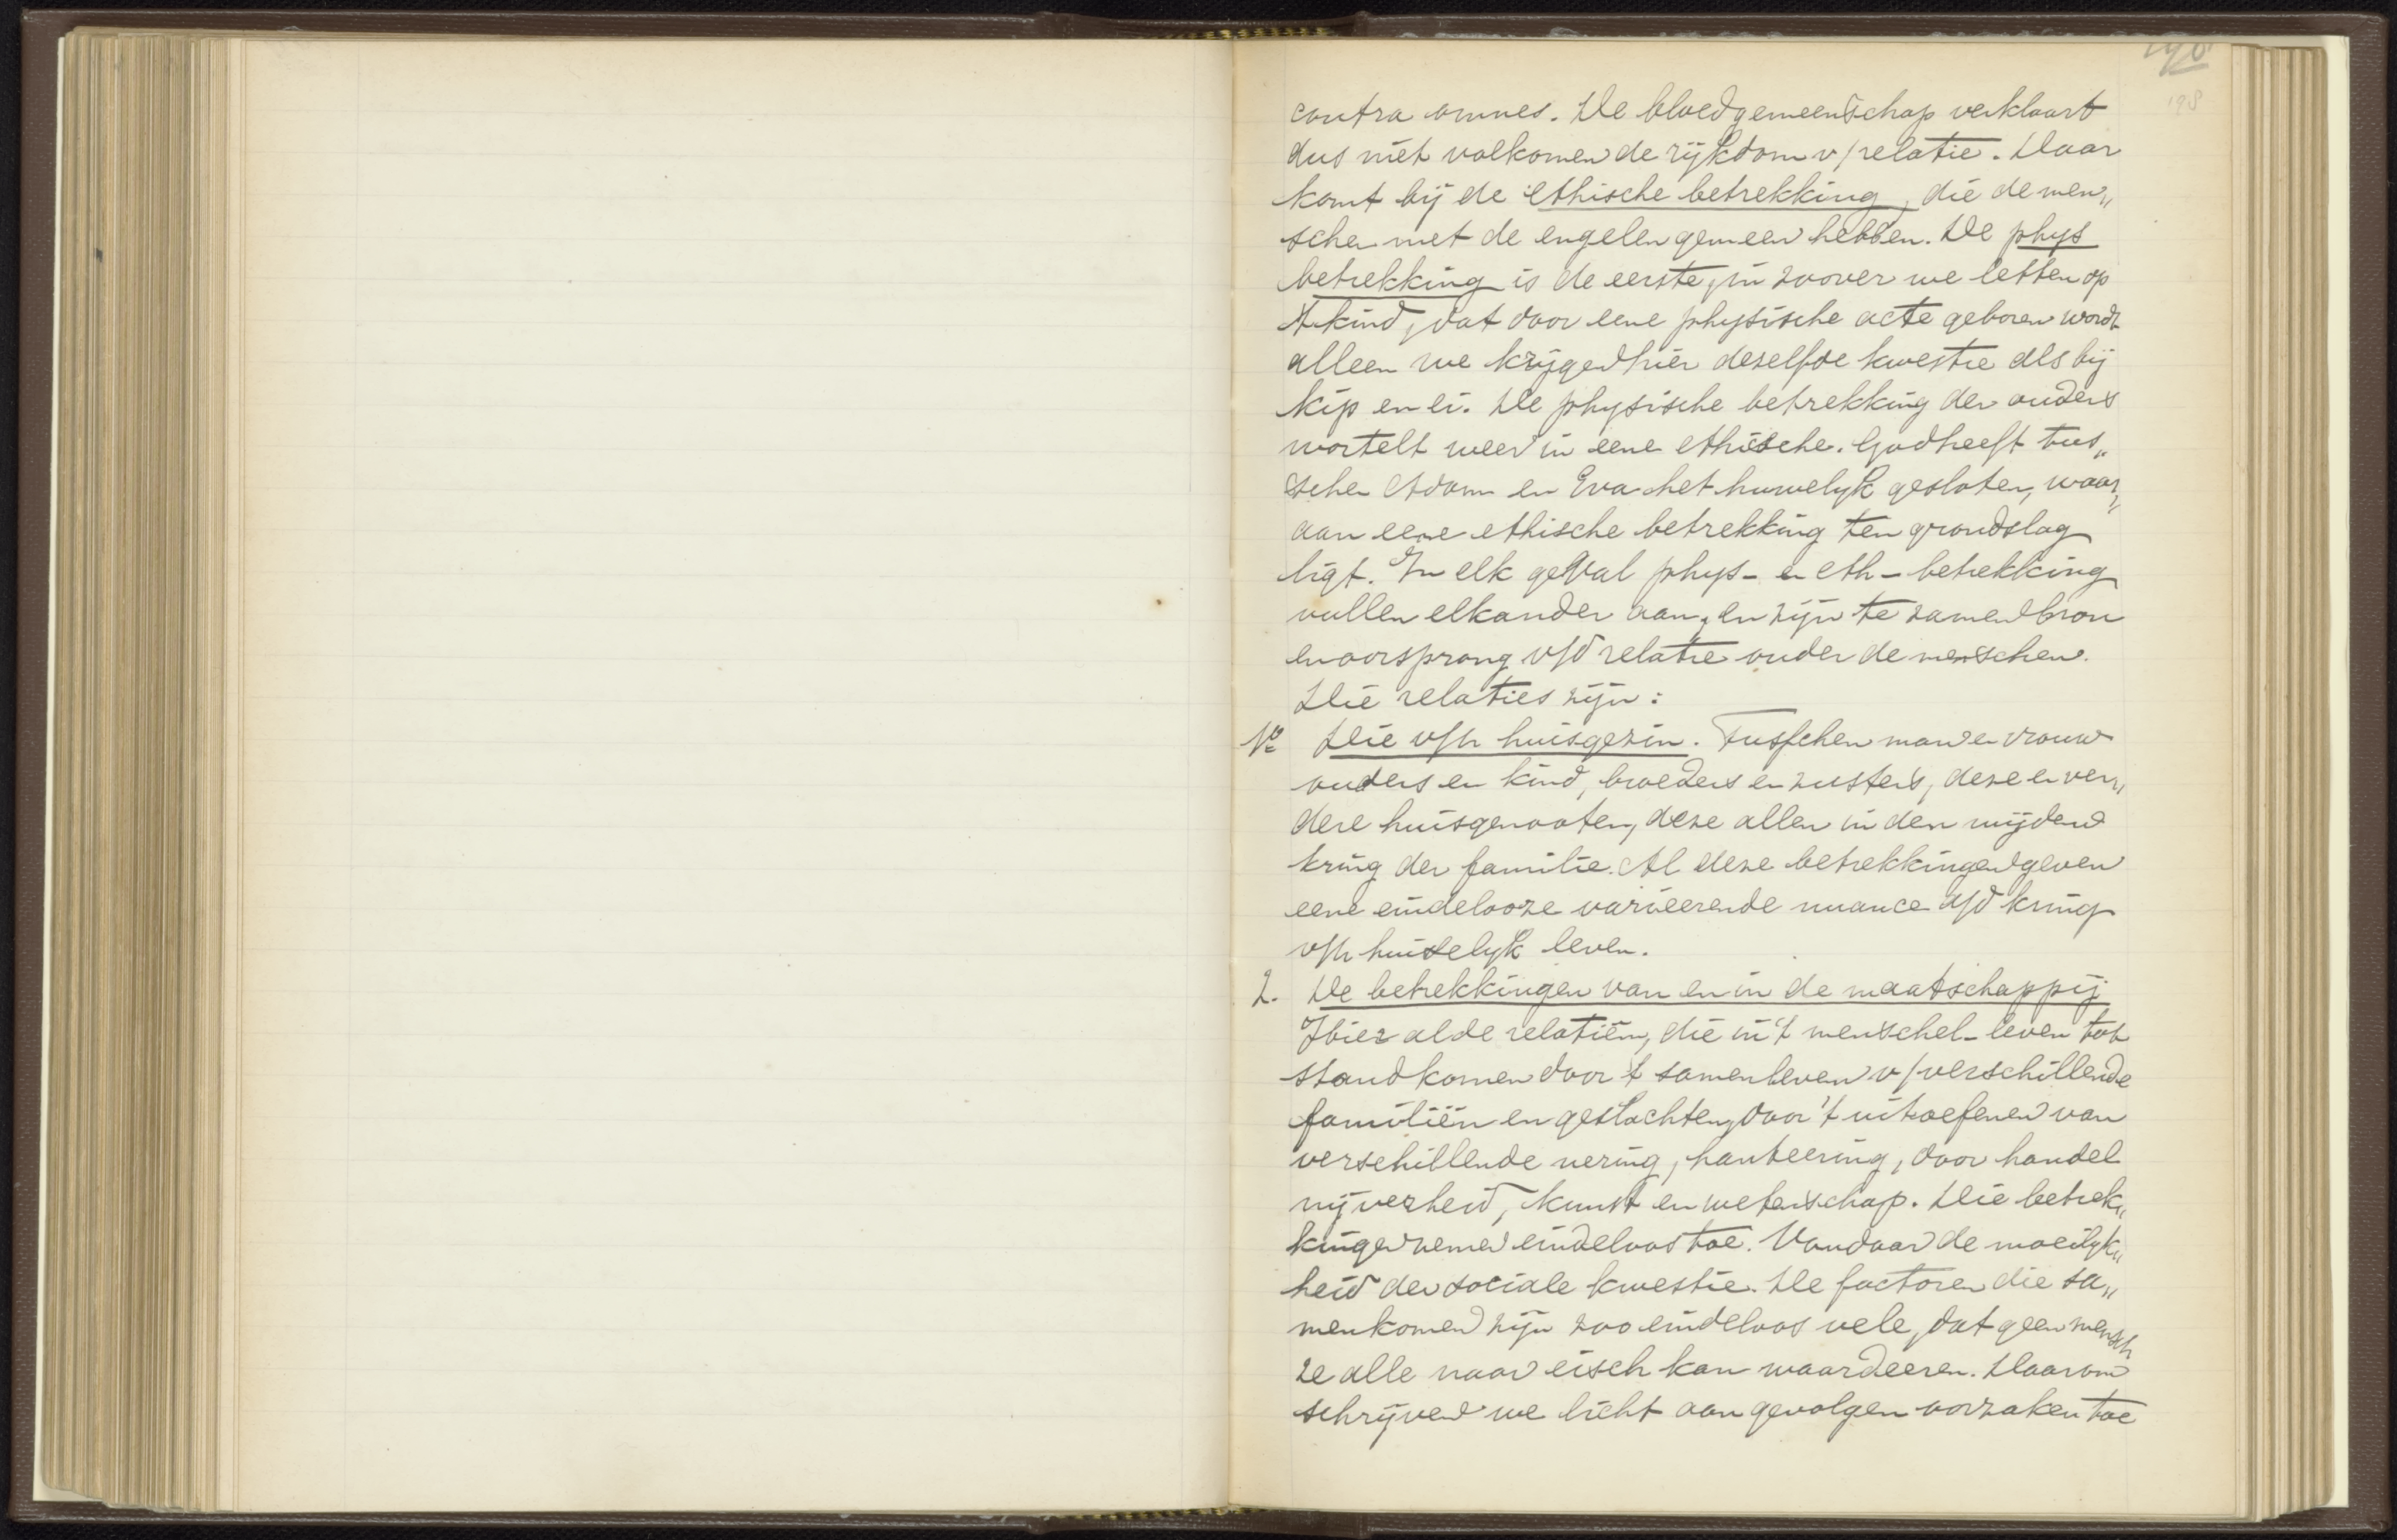 198
contra omnes. De bloedgemeenschap verklaart
dus niet volkomen de rijkdom v/ relatie. Daar
komt bij de ethische betrekking, die de men„
schen met de engelen gemeen hebben. De phys
betrekking is de eerste, in zoover we letten op
't kind, dat door eene physische acte geboren wordt
alleen we krijgen hier deselfde kwestie als bij
kip en ei. De physische betrekking der ouders
wortelt weer in eene ethische. God heeft tus„
schen Adam en Eva het huwelyk gesloten, waar„
aan eene ethische betrekking ten grondslag
ligt. In elk geval phys- en eth- betrekking
vullen elkander aan, en zijn te zamen bron
en oorsprong v/d relatie onder de menschen.
Die relaties zijn:
1º Die v/h huisgezin. Tusschen man en vrouw
ouders en kind, broeders en zusters, deze en ver„
dere huisgenooten, deze allen in den wijden
kring der familie. Al deze betrekkingen geven
eene eindelooze varieerende nuance a/d kring
v/h huiselyk leven.
2. De betrekkingen van en in de maatschappij
Hier al de relatiën, die in 't menschel- leven tot
stand komen door 't samenleven v/ verschillende
familiën en geslachten, door 't uitoefenen van
verschillende nering, hanteering, door handel
nijverheid, kunst en wetenschap. Die betrek„
kingen nemen eindeloos toe. Vandaar de moeilyk„
heid der sociale kwestie. De factoren die sa„
menkomen zijn zoo eindeloos vele, dat geen mensch
ze alle naar eisch kan waardeeren. Daarom
schrijven we licht aan gevolgen oorzaken toe